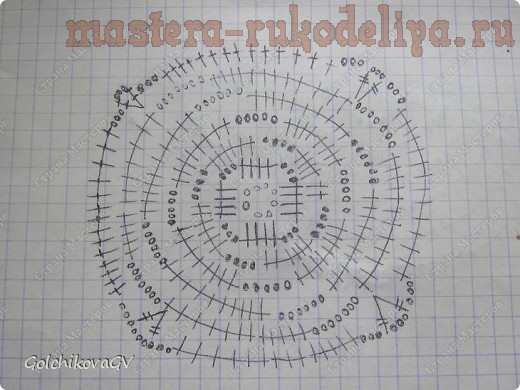 mastera-rukodeliya.ru
GolchikovaGV